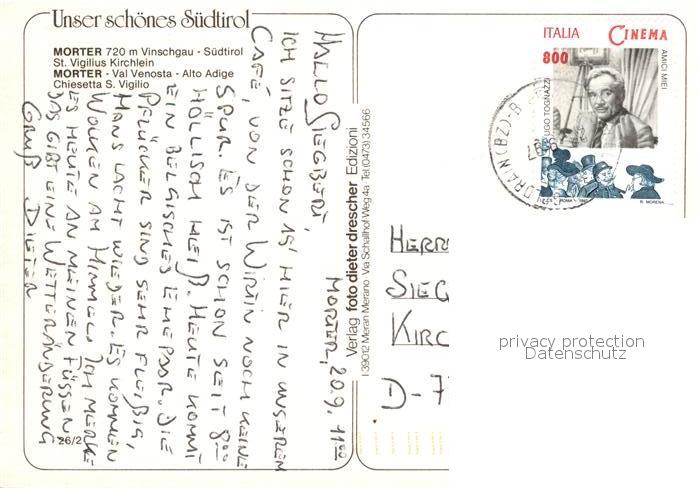 Unser schönes Südtirol
MORTER 720 m Vinschgau - Südtirol
St. Vigilius Kirchlein
MORTER - Val Venosta - Alto Adige
Chiesetta S. Vigilio
MORTER, 20.9. 11⁰⁰
HALLO SIEGBERT,
ICH SITZE SCHON 15' HIER IN UNSEREM
CAFÉ, VON DER WIRTIN NOCH KEINE
SPUR. ES IST SCHON SEIT 8⁰⁰
HÖLLISCH HEIß. HEUTE KOMMT
EIN BELGISCHES EHEPAAR. DIE
PFLÜCKER SIND SEHR FLEIßIG,
HANS LACHT WIEDER. ES KOMMEN
WOLKEN AM HIMMEL. ICH MERKE
ES HEUTE AN MEINEN FÜSSEN
DAS GIBT EINE WETTERÄNDERUNG
GRUß DIETER
26/2
Verlag foto dieter drescher Edizioni
I-39012 Meran Merano Via Schallhof-Weg 4a Tel (0473) 34566
ITALIA CINEMA
800
AMICI MIEI
UGO TOGNAZZI
R. MORENA
HERR
SIEG
KIRC
D-7
privacy protection
Datenschutz